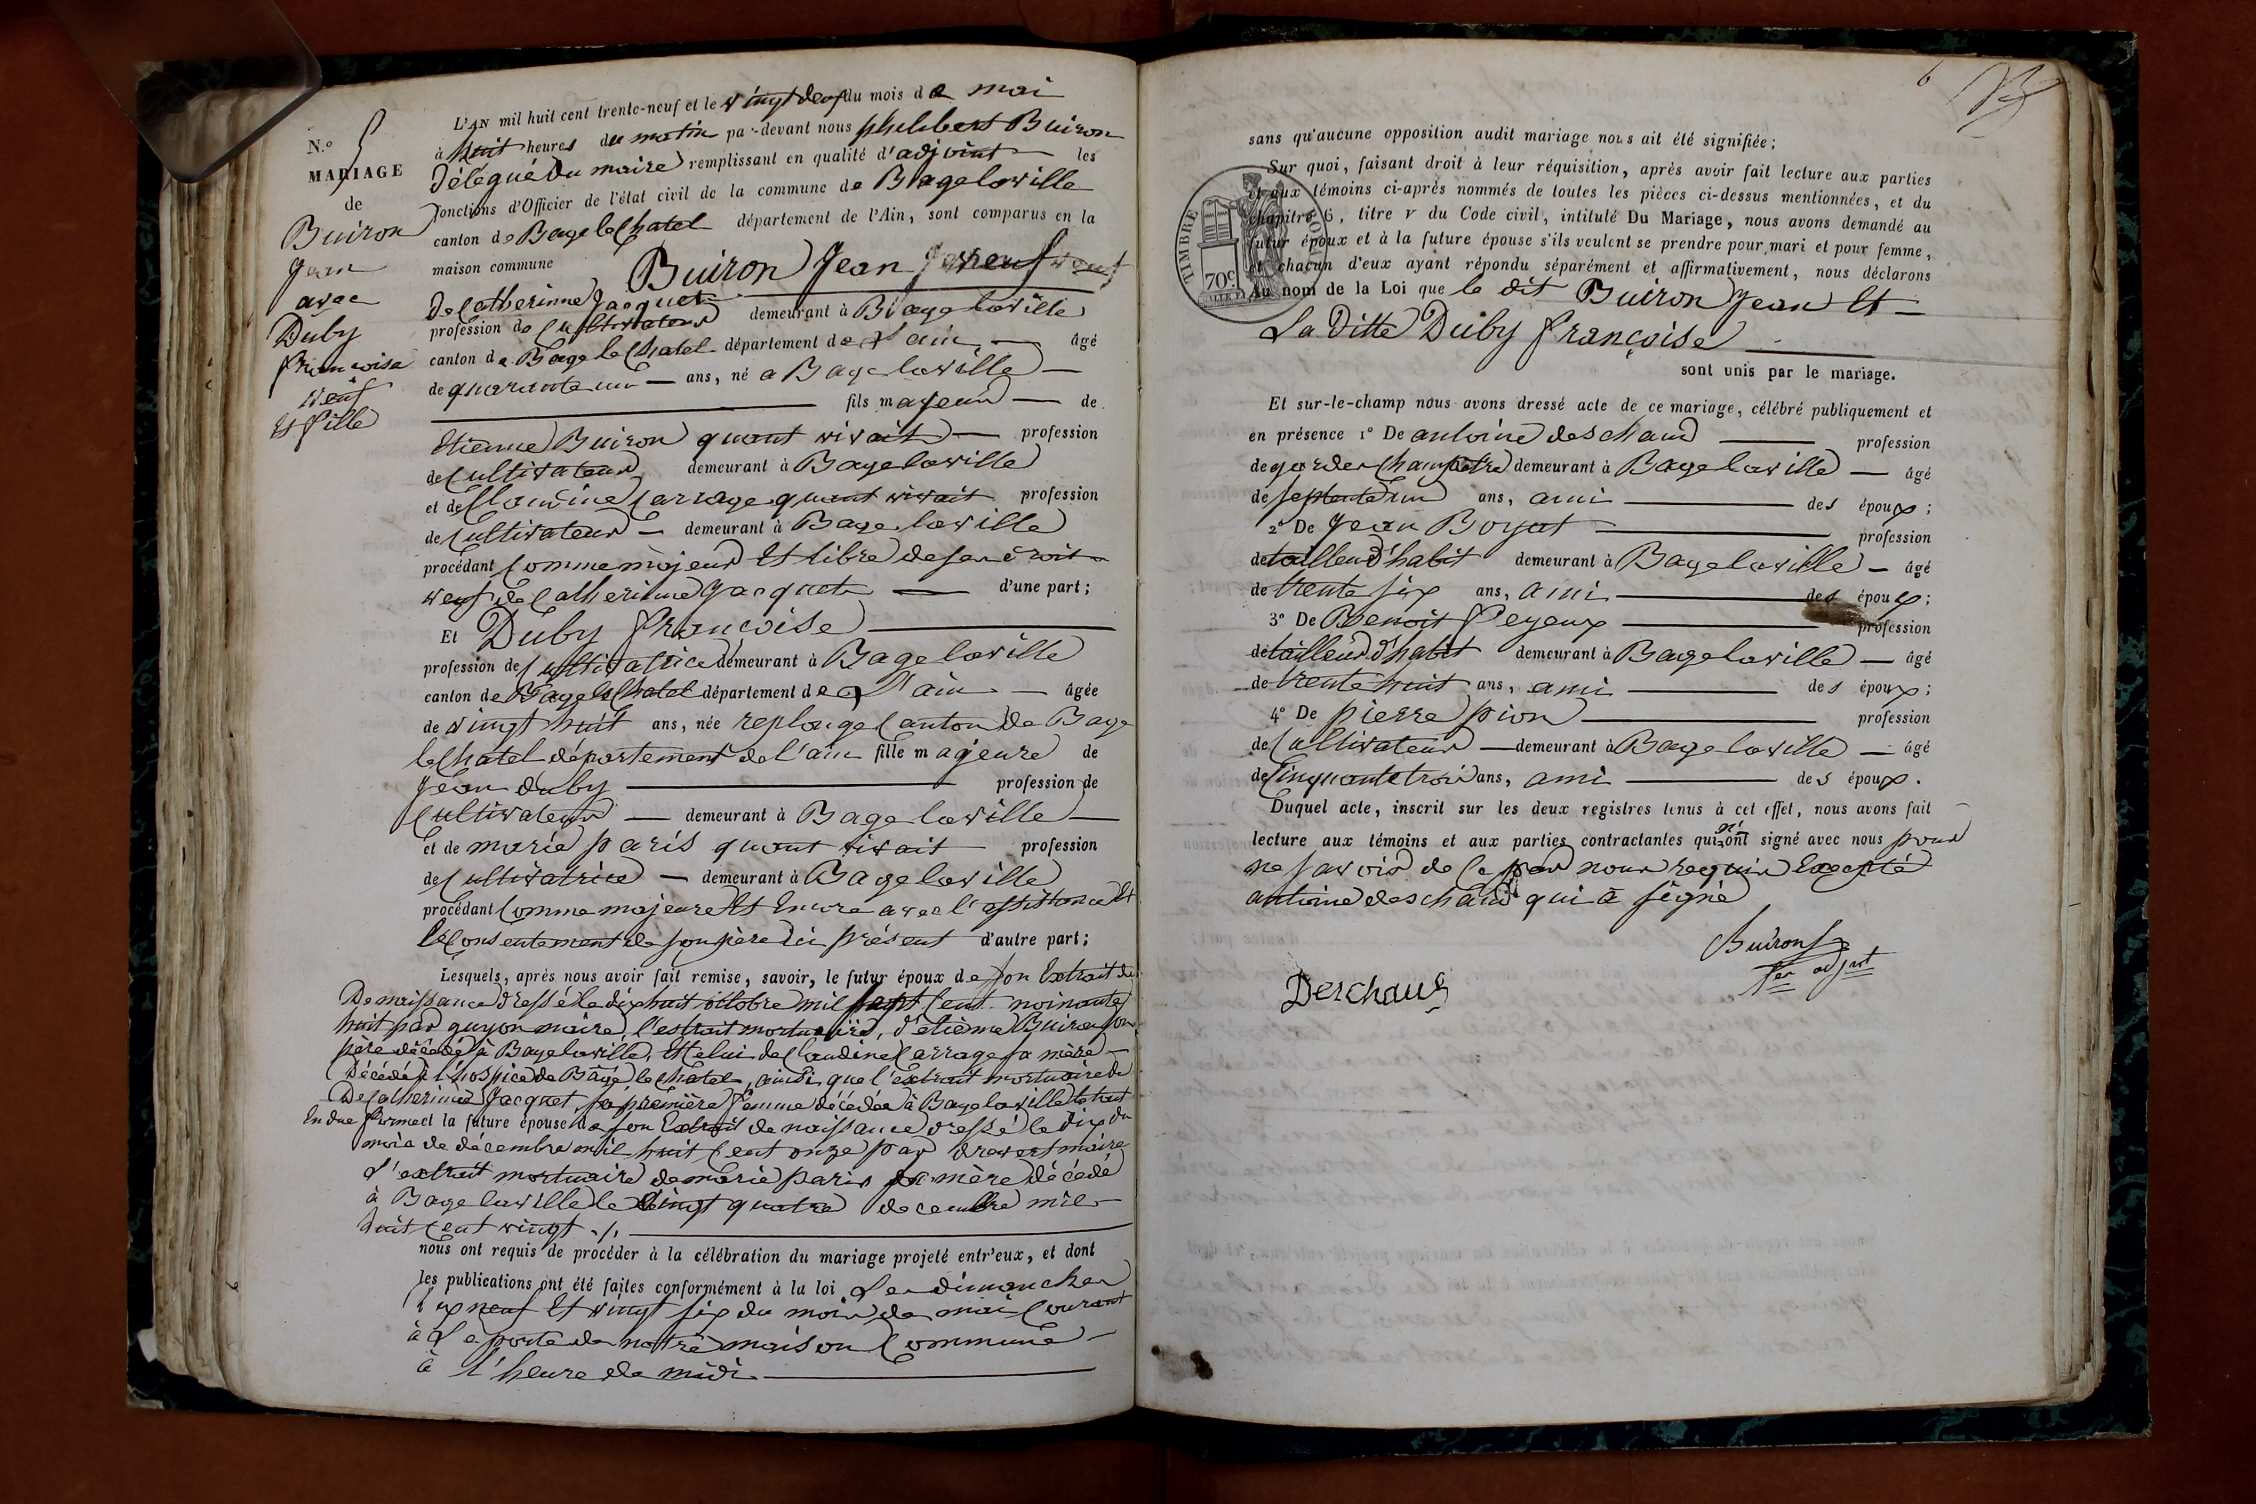 N.º 5
MARIAGE
de
Buiron
Jean
avec
Duby
françoise
veuf
Et fille
L'AN mil huit cent trente-neuf et le vingt neuf du mois de mai
à huit heures du matin par-devant nous philibert Buiron
Délégué Du maire remplissant en qualité d'adjoint les
fonctions d'Officier de l'état civil de la commune de Bage laville
canton de Bage le Chatel département de l'Ain, sont comparus en la
maison commune Buiron Jean veuf
De Catherinne Jacquet
profession de Cultivateur demeurant à Bage laville
canton de Bage le Chatel département de l'ain âgé
de quarante un ans, né a Bage laville
fils majeur de
Etienne Buiron quant vivait profession
de Cultivateur demeurant à Bage laville
et de Claudine Carrage quant vivait profession
de Cultivateur demeurant à Bage laville
procédant Comme majeur Et libre de ses droit
veuf de Catherinne Jacquet d'une part;
Et Duby françoise
profession de Cultivatrice demeurant à Bage laville
canton de Bage le Chatel département de l'ain âgée
de vingt huit ans, née replonge Canton de Bage
le Chatel département de l'ain fille majeure de
Jean duby profession de
Cultivateur demeurant à Bage laville
et de marie paris quant vivait profession
de Cultivatrice demeurant à Bage laville
procédant Comme majeure Et Encre avec l'assistance Et
le Consentement de son père ici présent d'autre part;
Lesquels, après nous avoir fait remise, savoir, le futur époux de son Extrait de
De naissance dressé le dix huit octobre mil sept Cent noinante
huit par guyon maire, l'estrait mortuaire, d'etienne Buiron son
père décédé à Bage laville, Et Celui de Claudine Carrage sa mère
Décédé à l'hospice de Bagé le Chatel, ainsi que l'extrait mortuaire de
De Catherinne Jacquet sa première femme décédée à Bage laville le tout
En due forme et la future épouse de son Extrait de naissance dressé le dix du
mois de décembre mil huit Cent onze par drevet maire
L'extrait mortuaire de marie paris sa mère décédé
à Bage laville le vingt quatre decembre mil
huit Cent vingt
nous ont requis de procéder à la célébration du mariage projeté entr'eux, et dont
les publications ont été faites conformément à la loi Les dimanches
Dix neuf Et vingt six du mois de mai Courant
à La porte de notre maison Commune
à l'heure de midi
6
sans qu'aucune opposition audit mariage nous ait été signifiée;
Sur quoi, faisant droit à leur réquisition, après avoir fait lecture aux parties
et aux témoins ci-après nommés de toutes les pièces ci-dessus mentionnées, et du
chapitre 6, titre v du Code civil, intitulé Du Mariage, nous avons demandé au
futur époux et à la future épouse s'ils veulent se prendre pour mari et pour femme,
et chacun d'eux ayant répondu séparément et affirmativement, nous déclarons
Au nom de la Loi que le dit Buiron Jean Et
La Ditte Duby françoise
sont unis par le mariage.
TIMBRE
70c.
Et sur-le-champ nous avons dressé acte de ce mariage, célébré publiquement et
en présence 1º De antoine deschaud profession
de garder Champetre demeurant à Bage laville âgé
de septente un ans, ami des époux;
2º De Jean Boyat profession
de tailleur d'habit demeurant à Bage laville âgé
de trente six ans, ami des époux;
3º De Benoit feyeux profession
de tailleur d'habit demeurant à Bage laville âgé
de trente huit ans, ami des époux;
4º De pierre pion profession
de Cultivateur demeurant à Bage laville âgé
de Cinquante trois ans, ami des époux.
Duquel acte, inscrit sur les deux registres tenus à cet effet, nous avons fait
lecture aux témoins et aux parties contractantes qui n'ont signé avec nous pour
ne savoir de Ce par nous requis Excepté
antoine deschaud qui a signé
Buiron
1er adjoint
Deschaud